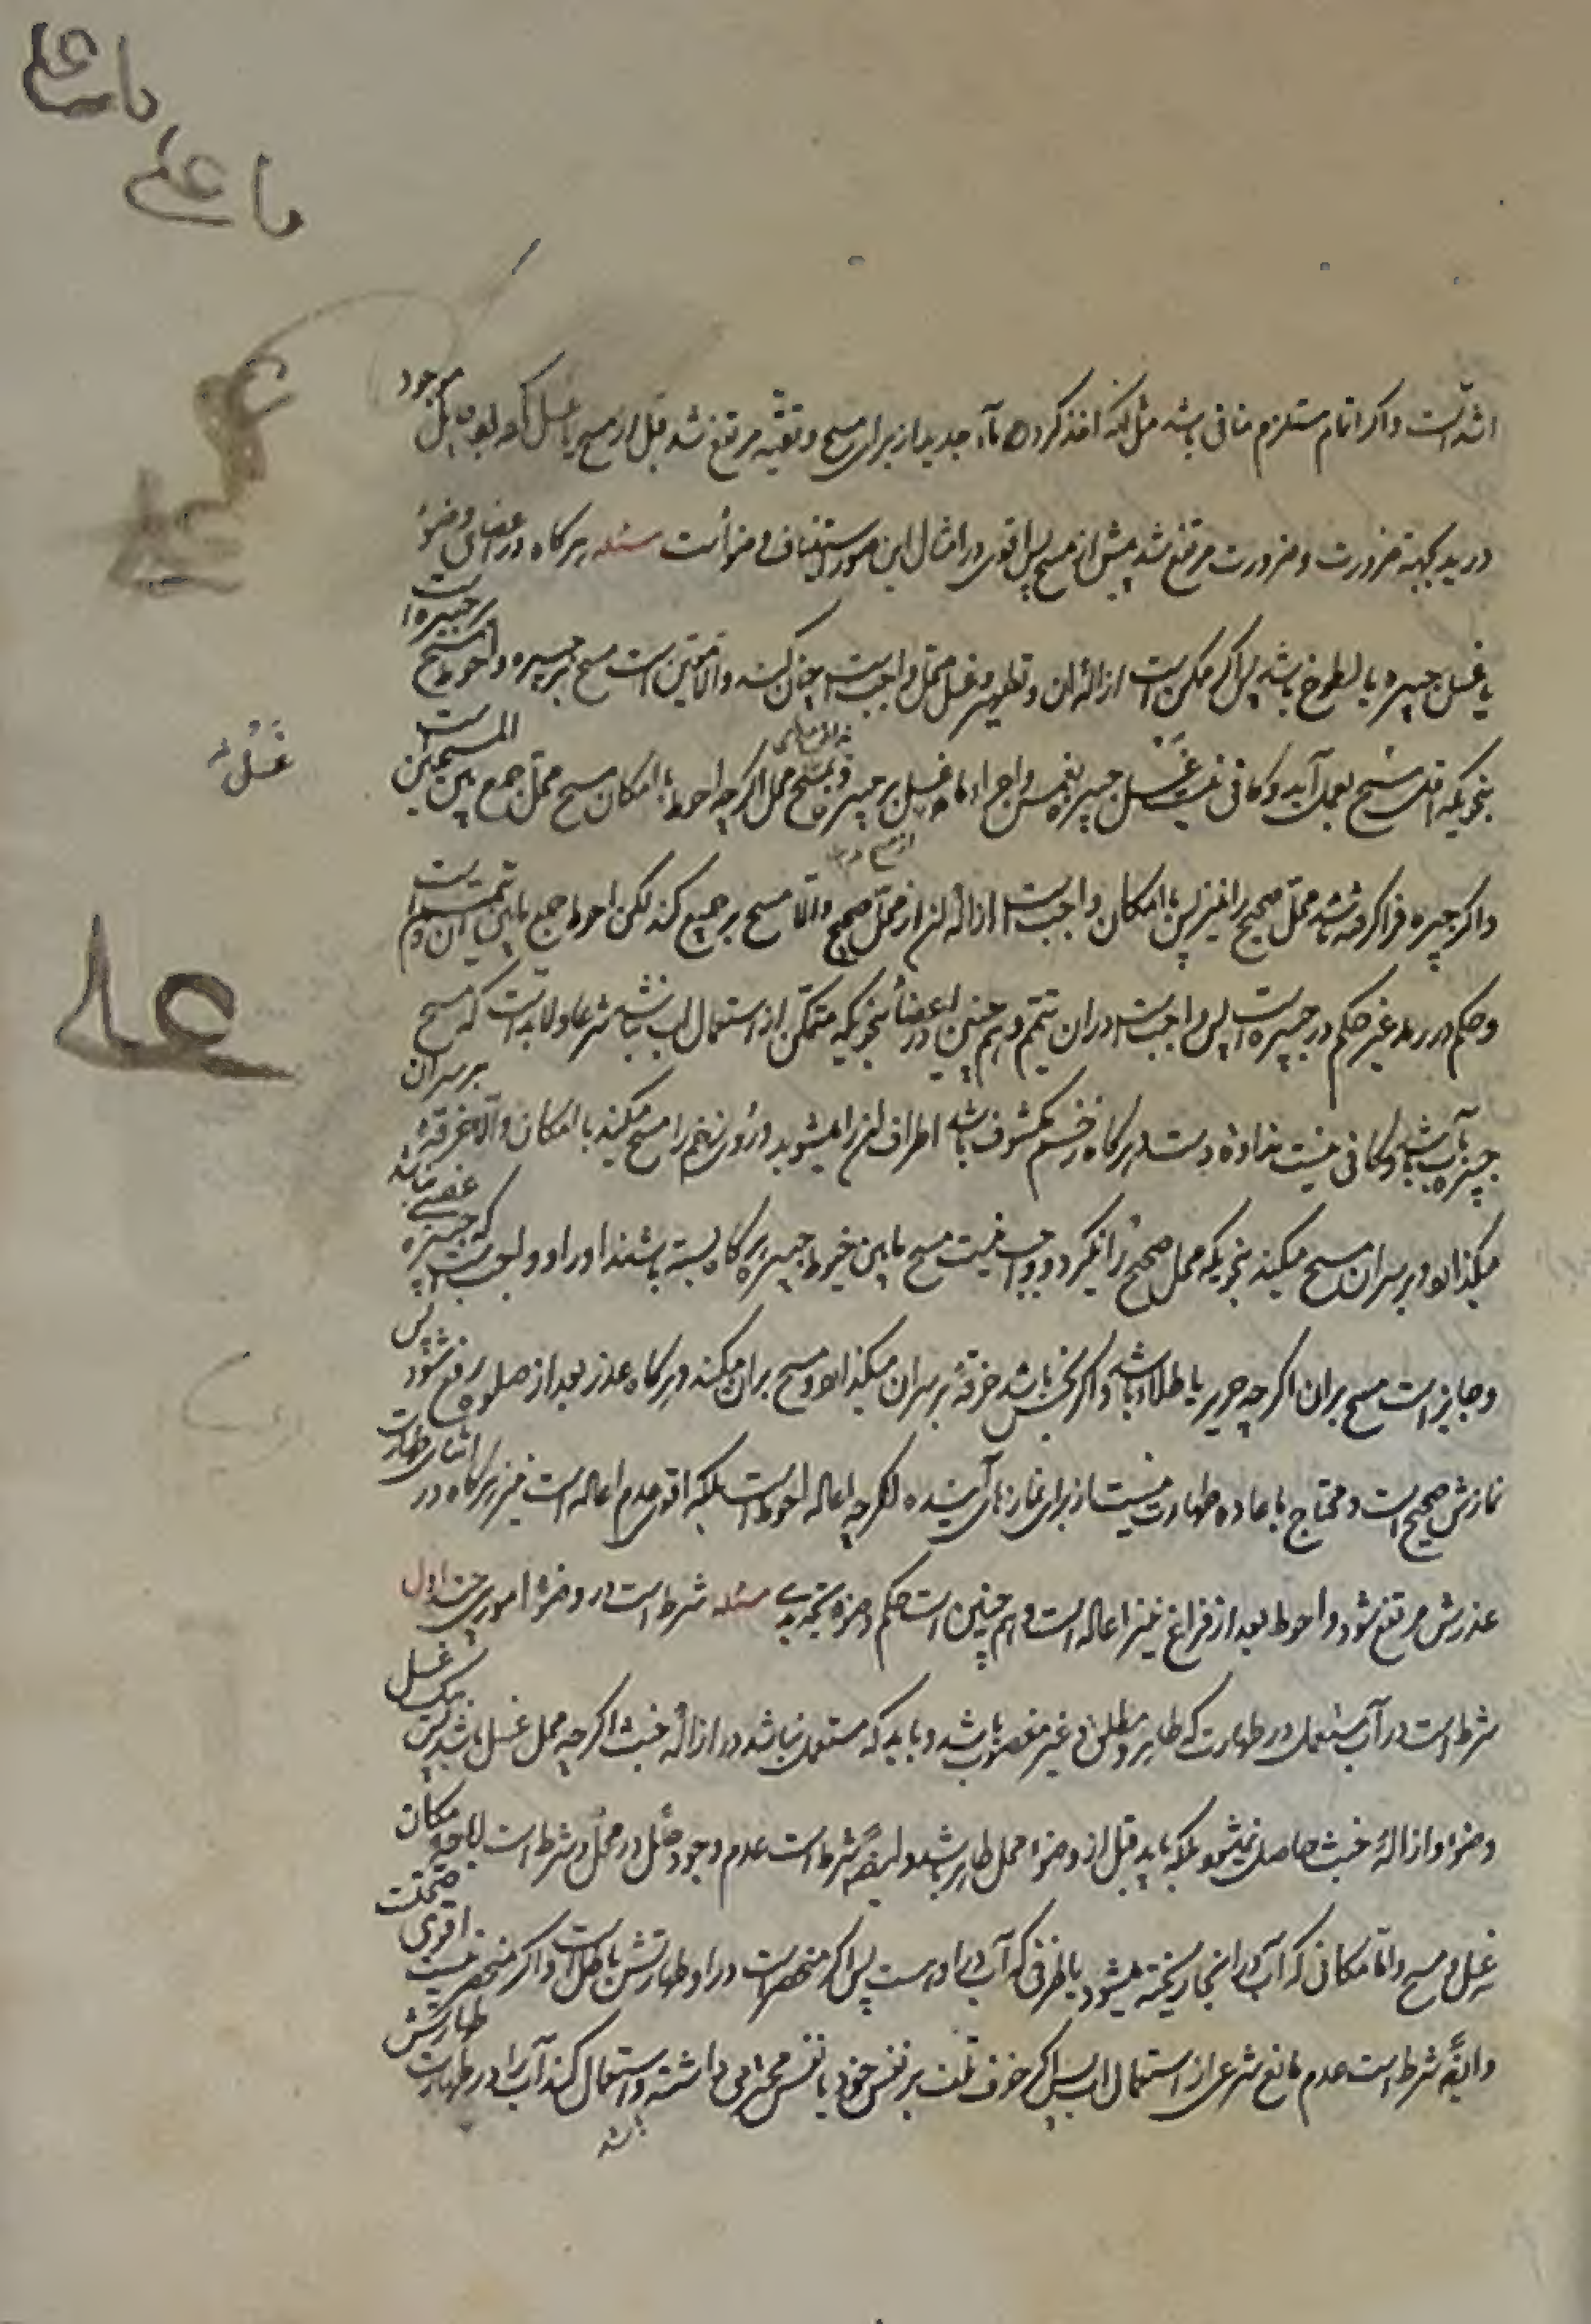 یا علی
یا علی
اشدّ است و اگر اتمام مستلزم منافی باشد مثل آنکه اخذ کرده ماء جدید از برای مسح و تقیه مرتفع شد قبل از مسح یا غسل موجود
در ید بجهة ضرورت و ضرورت مرتفع شد پیش از مسح پس اقوی در امثال این صور استیناف وضو است مسئله هرگاه در اعضای وضوء
یا غسل جبیره یا لطوخ باشد پس اگر ممکن است ازاله آن و تطهیر و غسل محل واجب است چنان کند والا متعین است مسح بر جبیره و احوط مسح جبیره است
بنحویکه اقل مسح بعمل آید و کافی نیست غسل جبیره و اجراء ماء غسل بر جبیره و نه مسح محل اگرچه احوط با امکان مسح محل جمع بین المسحین است
غسل
و اگر جبیره فرا گرفته باشد محل صحیح را نیز پس با امکان واجب است ازاله آن از محل صحیح والّا مسح بر جمیع کند لکن احوط جمع مابین آن و تیمم است
و حکم در رمد غیر حکم در جبیره است پس واجب است در آن تیمم و هم چنین در اعضاء بنحویکه متمکن از استعمال آب نباشد شرعا و لابد است که مسح بر سر آن
علی
جبیره بآب باشد و کافی نیست نداوة دست هرگاه زخم مکشوف باشد اطراف آن را میشوید و روی زخم را مسح میکند با امکان والا خرقهٔ
میگذارد و بر سر آن مسح میکند بنحویکه محل صحیح را نگیرد و واجب نیست مسح مابین خیوط جبیره هرگاه بسته باشند او را و واجب است که جبیره غصبی نباشد
و جایز است مسح بر آن اگرچه حریر یا طلا باشد و اگر نجس باشد خرقهٔ بر سر آن میگذارد و مسح بر آن میکند و هرگاه عذر بعد از صلوة رفع شود پس
نمازش صحیح است و محتاج باعاده طهارت نیست از برای نمازهای آینده اگرچه اعاده احوط است بلکه اقوی عدم اعاده است نیز هرگاه در اثنای طهارت
عذرش مرتفع شود و احوط بعد از فراغ نیز اعاده است و هم چنین است حکم وضوء تجدیدی مسئله شرط است در وضوء اموری چند اول
شرط است در آب مستعمل در طهارت که طاهر و مطلق و غیر مغصوب باشد و باید که مستعمل نباشد در ازالهٔ خبث اگرچه محل غسل باشد پس بیک غسل
وضو و ازالهٔ خبث حاصل نمیشود بلکه باید قبل از وضوء محل طاهر باشد و ایضا شرط است عدم وجود حائل در محل و شرط است اباحه مکان
غسل و مسح و امّا مکانی که آب در آنجا ریخته میشود یا ظرفی که آب در او است پس اگر منحصر است در او طهارتش باطل است و اگر منحصر نیست اقوی صحّت
و ایضا شرط است عدم مانع شرعی از استعمال آب پس اگر خوف تلف بر نفس خود یا نفس محترمی داشته باشد و استعمال کند آب را در طهارت طهارتش